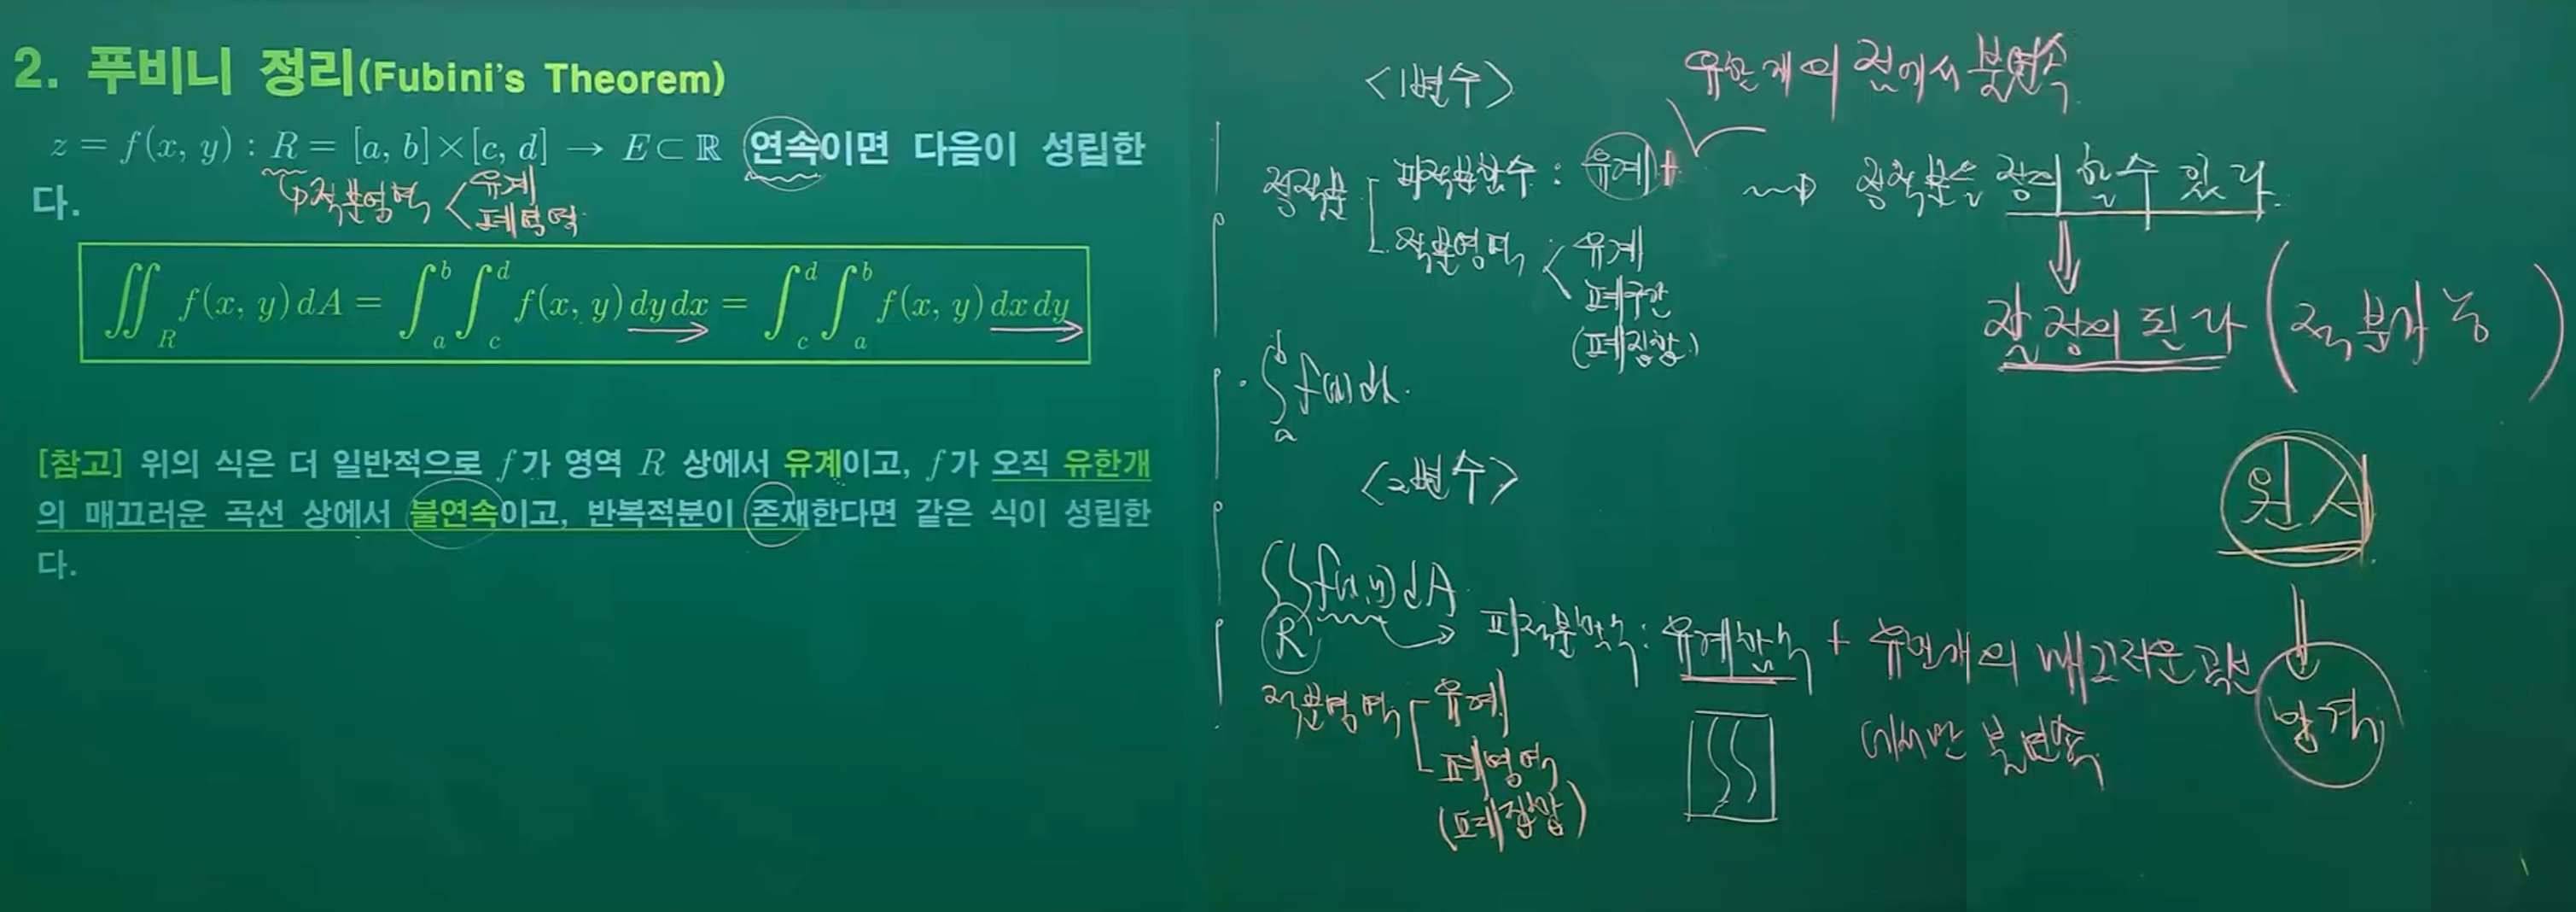 2. 푸비니 정리(Fubini's Theorem)
z = f(x, y) : R = [a, b]×[c, d] → E⊂ℝ 연속이면 다음이 성립한
다.
적분영역 < 유계
폐영역
∬_R f(x, y) dA = ∫_a^b ∫_c^d f(x, y) dy dx = ∫_c^d ∫_a^b f(x, y) dx dy
[참고] 위의 식은 더 일반적으로 f가 영역 R 상에서 유계이고, f가 오직 유한개
의 매끄러운 곡선 상에서 불연속이고, 반복적분이 존재한다면 같은 식이 성립한
다.
<1변수>
유한개의 점에서 불연속
정적분
피적분함수 : 유계 +
⇝ 정적분을 정의할 수 있다
적분영역 < 유계
폐구간
(폐집합)
⇓
잘 정의된다 (적분가능)
∫_a^b f(x) dx.
<2변수>
∬_R f(x,y) dA
→ 피적분함수 : 유계함수 + 유한개의 매끄러운 곡선
에서만 불연속
적분영역
유계
폐영역
(폐집합)
원서
⇓
합격